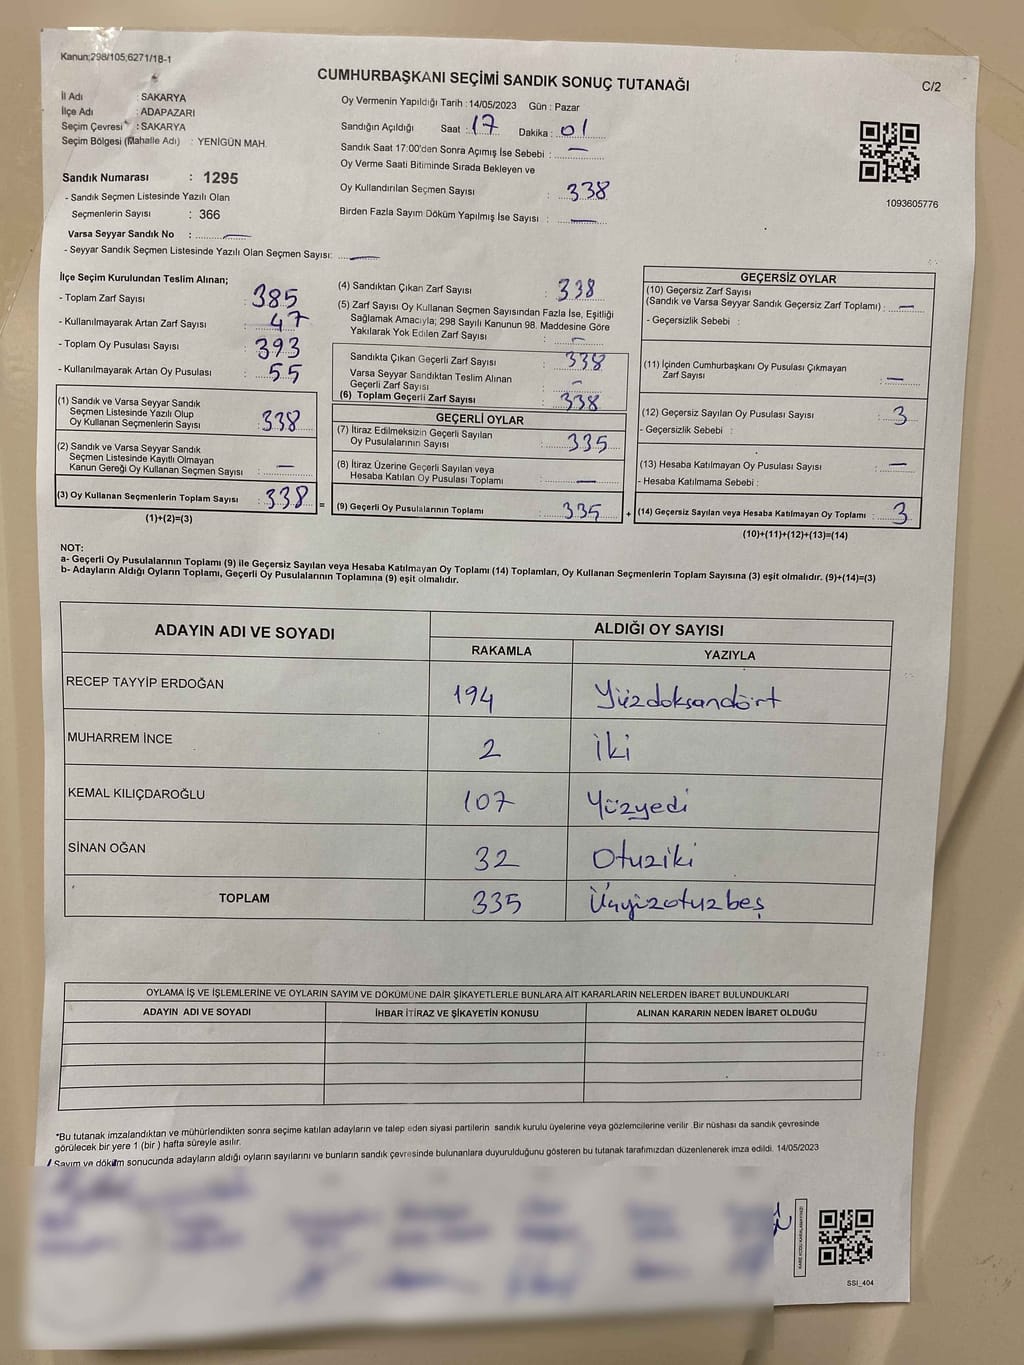 Kanun;298/105;6271/18-1
CUMHURBAŞKANI SEÇİMİ SANDIK SONUÇ TUTANAĞI
C/2
İl Adı : SAKARYA
İlçe Adı : ADAPAZARI
Seçim Çevresi : SAKARYA
Seçim Bölgesi (Mahalle Adı) : YENİGÜN MAH.
Sandık Numarası : 1295
- Sandık Seçmen Listesinde Yazılı Olan
Seçmenlerin Sayısı : 366
Varsa Seyyar Sandık No : —
- Seyyar Sandık Seçmen Listesinde Yazılı Olan Seçmen Sayısı: —
Oy Vermenin Yapıldığı Tarih : 14/05/2023 Gün : Pazar
Sandığın Açıldığı Saat : 17 Dakika : 01
Sandık Saat 17:00'den Sonra Açımış İse Sebebi : —
Oy Verme Saati Bitiminde Sırada Bekleyen ve
Oy Kullandırılan Seçmen Sayısı : 338
Birden Fazla Sayım Döküm Yapılmış İse Sayısı : —
1093605776
İlçe Seçim Kurulundan Teslim Alınan;
- Toplam Zarf Sayısı : 385
- Kullanılmayarak Artan Zarf Sayısı : 47
- Toplam Oy Pusulası Sayısı : 393
- Kullanılmayarak Artan Oy Pusulası : 55
(1) Sandık ve Varsa Seyyar Sandık
Seçmen Listesinde Yazılı Olup
Oy Kullanan Seçmenlerin Sayısı : 338
(2) Sandık ve Varsa Seyyar Sandık
Seçmen Listesinde Kayıtlı Olmayan
Kanun Gereği Oy Kullanan Seçmen Sayısı : —
(3) Oy Kullanan Seçmenlerin Toplam Sayısı : 338 =
(1)+(2)=(3)
(4) Sandıktan Çıkan Zarf Sayısı : 338
(5) Zarf Sayısı Oy Kullanan Seçmen Sayısından Fazla İse, Eşitliği
Sağlamak Amacıyla; 298 Sayılı Kanunun 98. Maddesine Göre
Yakılarak Yok Edilen Zarf Sayısı : —
Sandıkta Çıkan Geçerli Zarf Sayısı : 338
Varsa Seyyar Sandıktan Teslim Alınan
Geçerli Zarf Sayısı : —
(6) Toplam Geçerli Zarf Sayısı : 338
GEÇERLİ OYLAR
(7) İtiraz Edilmeksizin Geçerli Sayılan
Oy Pusulalarının Sayısı : 335
(8) İtiraz Üzerine Geçerli Sayılan veya
Hesaba Katılan Oy Pusulası Toplamı : —
(9) Geçerli Oy Pusulalarının Toplamı : 335 +
GEÇERSİZ OYLAR
(10) Geçersiz Zarf Sayısı
(Sandık ve Varsa Seyyar Sandık Geçersiz Zarf Toplamı) : —
- Geçersizlik Sebebi :
(11) İçinden Cumhurbaşkanı Oy Pusulası Çıkmayan
Zarf Sayısı : —
(12) Geçersiz Sayılan Oy Pusulası Sayısı : 3
- Geçersizlik Sebebi :
(13) Hesaba Katılmayan Oy Pusulası Sayısı : —
- Hesaba Katılmama Sebebi :
(14) Geçersiz Sayılan veya Hesaba Katılmayan Oy Toplamı : 3
(10)+(11)+(12)+(13)=(14)
NOT:
a- Geçerli Oy Pusulalarının Toplamı (9) ile Geçersiz Sayılan veya Hesaba Katılmayan Oy Toplamı (14) Toplamları, Oy Kullanan Seçmenlerin Toplam Sayısına (3) eşit olmalıdır. (9)+(14)=(3)
b- Adayların Aldığı Oyların Toplamı, Geçerli Oy Pusulalarının Toplamına (9) eşit olmalıdır.
ADAYIN ADI VE SOYADI ALDIĞI OY SAYISI
RAKAMLA YAZIYLA
RECEP TAYYİP ERDOĞAN 194 Yüzdoksandört
MUHARREM İNCE 2 İki
KEMAL KILIÇDAROĞLU 107 Yüzyedi
SİNAN OĞAN 32 Otuziki
TOPLAM 335 Üçyüzotuzbeş
OYLAMA İŞ VE İŞLEMLERİNE VE OYLARIN SAYIM VE DÖKÜMÜNE DAİR ŞİKAYETLERLE BUNLARA AİT KARARLARIN NELERDEN İBARET BULUNDUKLARI
ADAYIN ADI VE SOYADI İHBAR İTİRAZ VE ŞİKAYETİN KONUSU ALINAN KARARIN NEDEN İBARET OLDUĞU
*Bu tutanak imzalandıktan ve mühürlendikten sonra seçime katılan adayların ve talep eden siyasi partilerin sandık kurulu üyelerine veya gözlemcilerine verilir .Bir nüshası da sandık çevresinde
görülecek bir yere 1 (bir ) hafta süreyle asılır.
Sayım ve döküm sonucunda adayların aldığı oyların sayılarını ve bunların sandık çevresinde bulunanlara duyurulduğunu gösteren bu tutanak tarafımızdan düzenlenerek imza edildi. 14/05/2023
SSİ_404